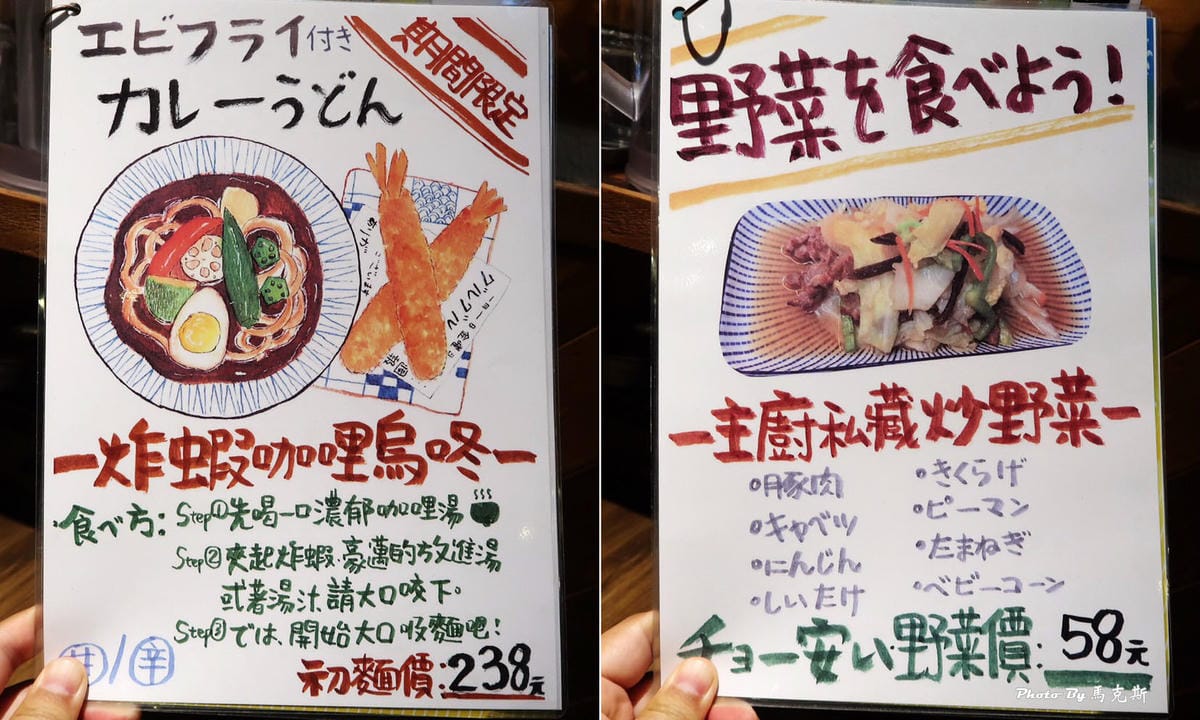 エビフライ付き
カレーうどん
期間限定
ありがとうございます
グルグル
－炸蝦咖哩烏咚－
食べ方：Step①先喝一口濃郁咖哩湯
Step②夾起炸蝦.豪邁的放進湯
或著湯汁.請大口咬下。
Step③では、開始大口吸麵吧！
甘/辛
初麵價：238元
野菜を食べよう！
－主廚私藏炒野菜－
•豚肉
•キャベツ
•にんじん
•しいたけ
•きくらげ
•ピーマン
•たまねぎ
•ベビーコーン
チョー安い野菜價：58元
Photo By 馬克斯